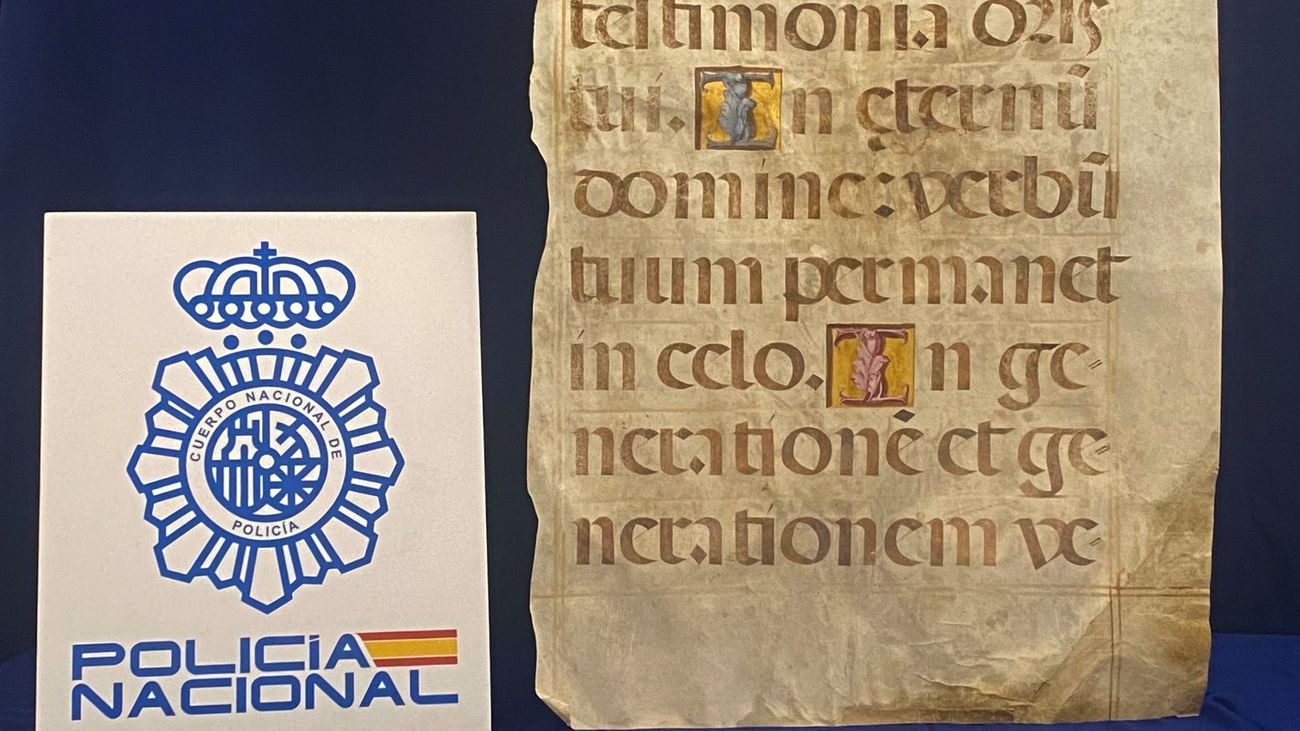 CUERPO NACIONAL DE
POLICÍA
POLICÍA
NACIONAL
testimonia oris
tui. In eternū
domine: verbū
tuum permanet
in celo. In ge=
neratione et ge
nerationem ve=